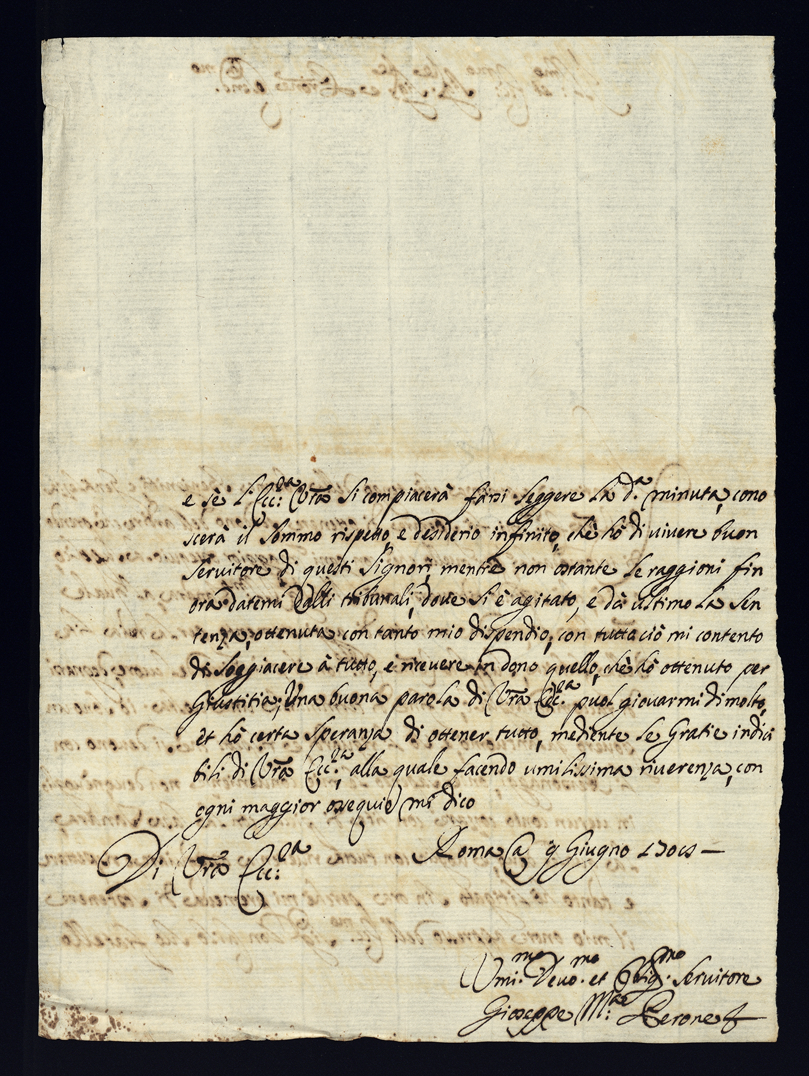 e sè L'Ecc.za Vrã si compiacerà farsi leggere la d.a minuta, cono
scerà il sommo rispetto, e desiderio infinito, chè hò di vivere buon
servitore di questi Signori, mentre non ostante le raggioni fin
ora datemi dalli tribunali, dove si è agitato, e dà ultimo la sen
tenza, ottenuta con tanto mio dispendio, con tutta ciò mi contento
di soggiacere à tutto, e ricevere in dono quello, chè hò ottenuto per
Giustitia; Una buona parola di Vrã Ecc.za puol giovarmi di molto,
et hò certa speranza di ottener tutto, mediente le Gratie indici
bili di Vrã Ecc.za, alla quale facendo umilissima riverenza, con
ogni maggior ossequio mi dico
Di Vrã Ecc.za
Roma Giugno
Umi.mo Devo.mo et Oblig.mo Servitore
Gioseppe M.a Perone